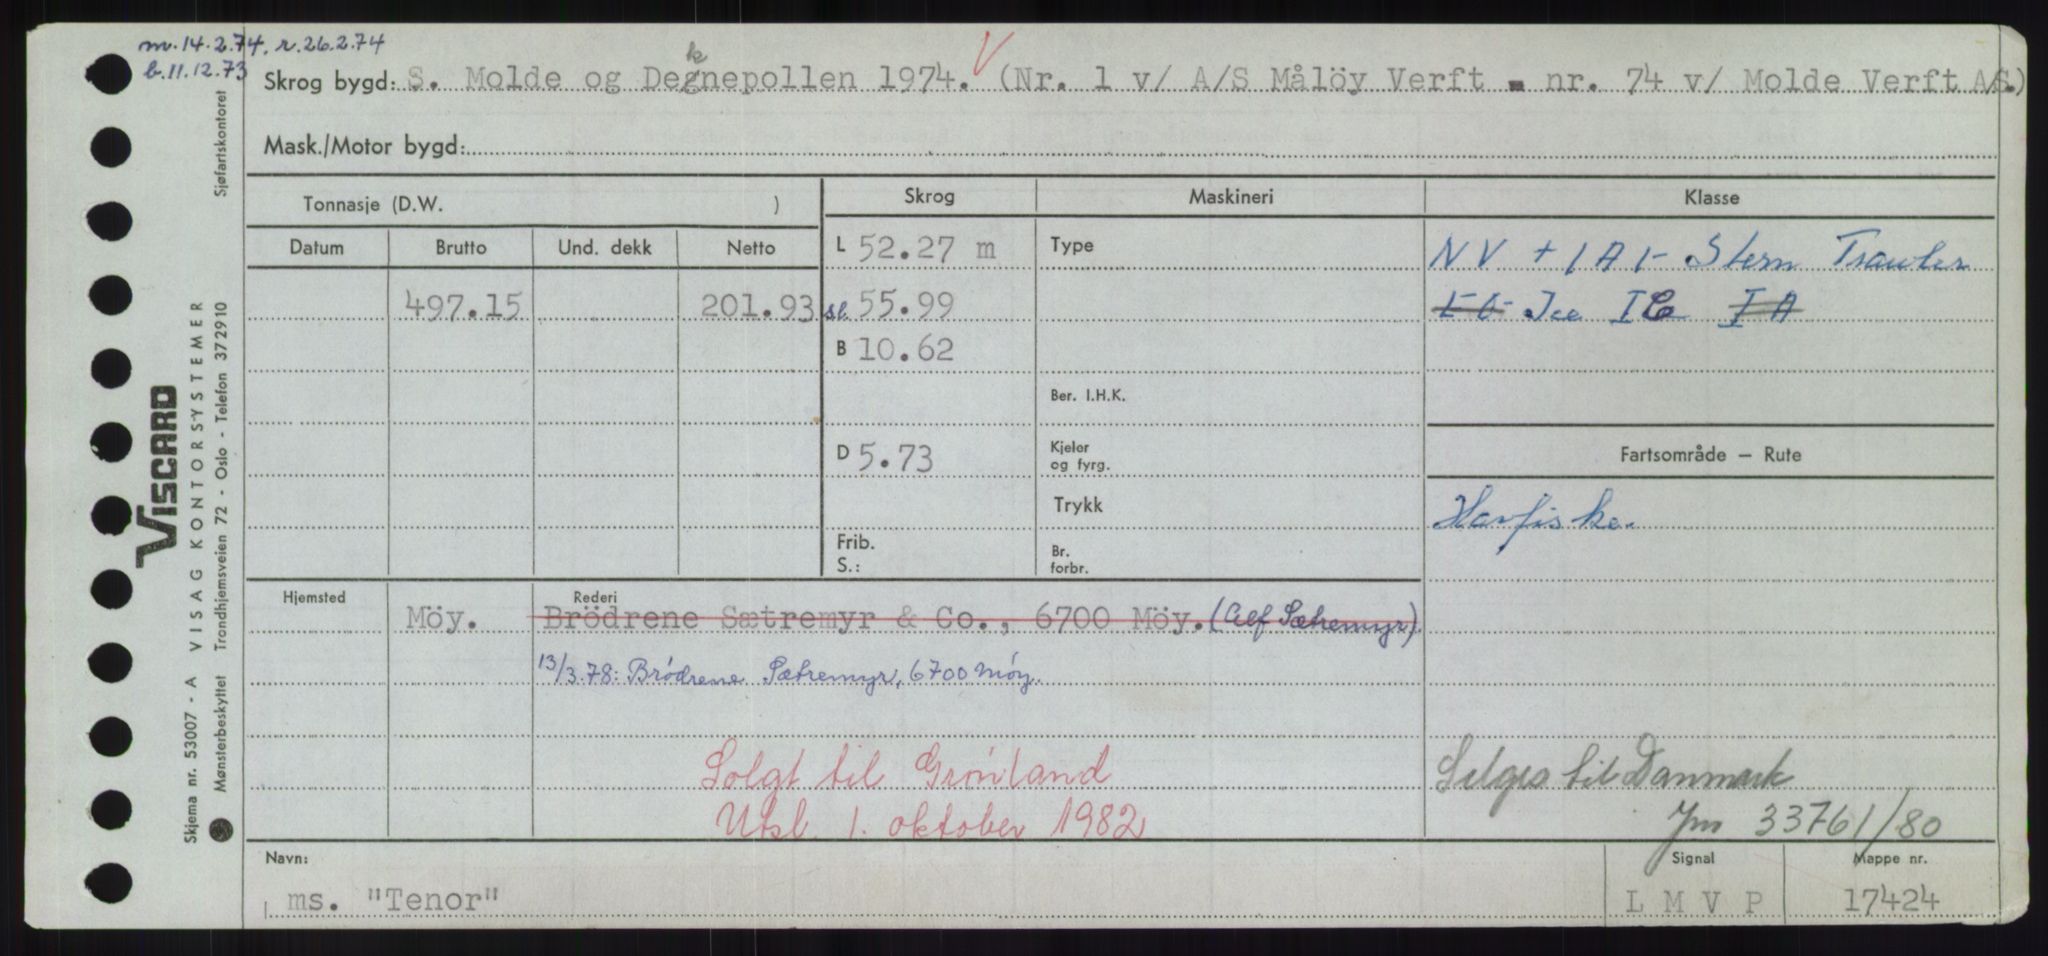 m. 14.2.74, r. 26.2.74
b. 11.12.73
k
Skrog bygd: S. Molde og Degnepollen 1974. V (Nr. 1 v/ A/S Målöy Verft - nr. 74 v/ Molde Verft A/S.)
Mask./Motor bygd:
Tonnasje (D.W. )
Skrog Maskineri Klasse
Datum Brutto Und. dekk Netto
L 52.27 m Type NV + 1A1- Stern Trawler
497.15 201.93 sl 55.99 Ice IC I A
B 10.62
Ber. I.H.K.
D 5.73 Kjeler og fyrg.
Fartsområde – Rute
Trykk Havfiske.
Frib.
S.:
Br.
forbr.
Hjemsted Rederi
Möy. Brödrene Sætremyr & Co., 6700 Möy. (Alf Sætremyr).
13/3.78: Brödrene Sætremyr, 6700 Möy.
Solgt til Grönland Selges til Danmark
Utsl. 1. oktober 1982 Jnr 33761/80
Navn: Signal Mappe nr.
ms. "Tenor" L M V P 17424
VISCARD
Skjema nr. 53007 - A VISAG KONTORSYSTEMER
Mønsterbeskyttet Trondhjemsveien 72 - Oslo - Telefon 372910 Sjøfartskontoret